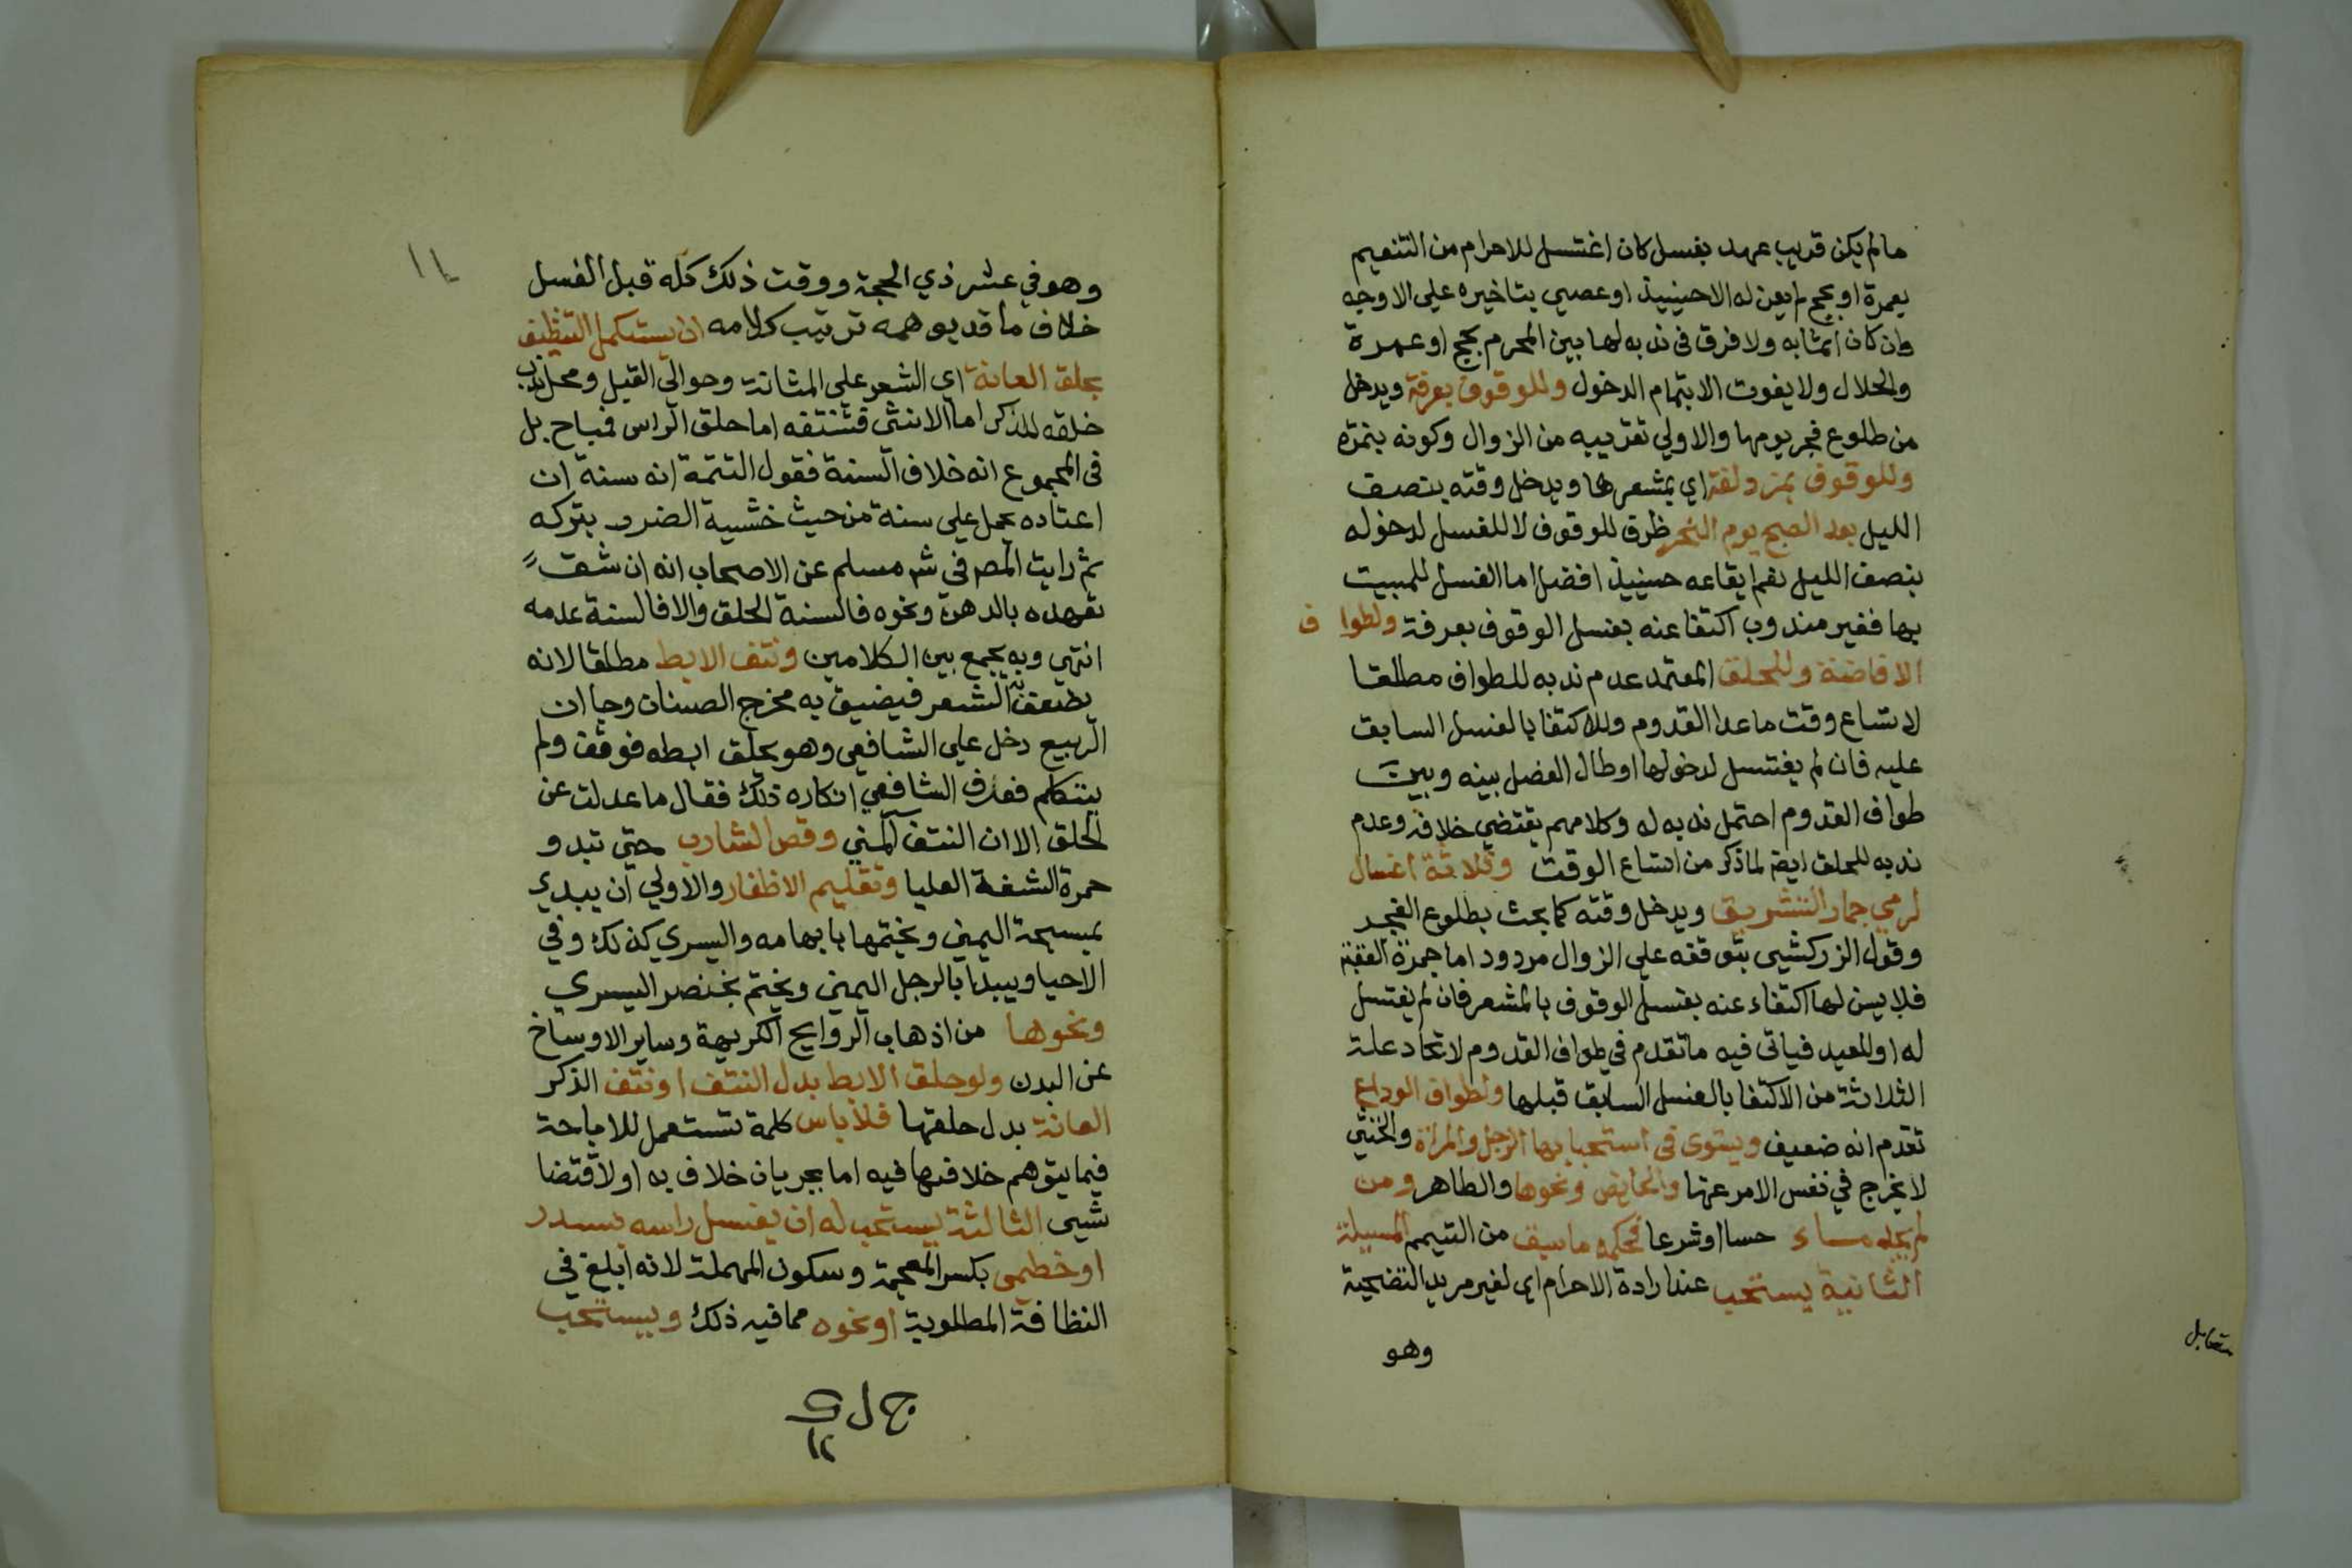 مالم يكن قريب عهد بغسل كان اغتسل للاحرام من التنعيم
بعمرة او بحج لم يعن له الا حينيذ او عصي بتاخيره علي الاوجه
وان كان آثما به ولا فرق في ندبه لها بين المحرم بحج او عمرة
والحلال ولا يفوت الا بتمام الدخول وللوقوف بعرفة ويدخل
من طلوع فجر يومها والاولي تقريبه من الزوال وكونه بنمرة
وللوقوف بمزدلفة اي بمشعرها ويدخل وقته بنصف
الليل بعد الصبح يوم النحر ظرف للوقوف لا للغسل لدخوله
بنصف الليل نعم ايقاعه حينيذ افضل اما الغسل للمبيت
بها فغير مندوب اكتفا عنه بغسل الوقوف بعرفة ولطواف
الافاضة وللحلق المعتمد عدم ندبه للطواف مطلقا
لاتساع وقت ماعدا القدوم وللاكتفا بالغسل السابق
عليه فان لم يغتسل لدخولها او طال الفصل بينه وبين
طواف القدوم احتمل ندبه له وكلامهم يقتضي خلافه وعدم
ندبه للحلق ايضا لما ذكر من اتساع الوقت وثلاثة اغسال
لرمي جمار التشريق ويدخل وقته كما بحث بطلوع الفجر
وقول الزركشي بتوقفه علي الزوال مردود اما جمرة العقبة
فلا يسن لها اكتفاء عنه بغسل الوقوف بالمشعر فان لم يغتسل
له او للعيد فياتي فيه ما تقدم في طواف القدوم لاتحاد علة
الثلاثة من الاكتفا بالغسل السابق قبلها ولطواف الوداع
تقدم انه ضعيف ويستوي في استحبابها الرجل والمراة والخنثي
لا يخرج في نفس الامر عنها والحايض ونحوها والطاهر ومن
لم يجد ماء حسا او شرعا فحكمه ما سبق من التيمم المسيلة
الثانية يستحب عند ارادة الاحرام اي لغير مريد التضحية
وهو
مقابل
١٢
وهو في عشر ذي الحجة ووقت ذلك كله قبل الغسل
خلاف ما قد يوهمه ترتيب كلامه ان يستكمل التنظيف
بحلق العانة اي الشعر علي المثانة وحوالي القبل ومحل ندب
حلقه للذكر اما الانثي فتنتفه اما حلق الراس فمباح بل
في المجموع انه خلاف السنة فقول التتمة انه سنة ان
اعتاده يحمل علي سنة من حيث خشية الضرر بتركه
ثم رايت المص في شر مسلم عن الاصحاب انه ان شق
تعهده بالدهن ونحوه فالسنة الحلق والا فالسنة عدمه
انتهي وبه يجمع بين الكلامين ونتف الابط مطلقا لانه
يضعف الشعر فيضيق به مخرج الصنان وجا ان
الربيع دخل علي الشافعي وهو يحلق ابطه فوقف ولم
يتكلم فعرف الشافعي انكاره ذلك فقال ما عدلت عن
الحلق الا ان النتف آلمني وقص الشارب حتي تبدو
حمرة الشفة العليا وتقليم الاظفار والاولي ان يبدي
بمسبحة اليمني ويختمها بابهامه واليسري كذلك وفي
الاحيا ويبدا بالرجل اليمني ويختم بخنصر اليسري
ونحوها من اذهاب الروايح الكريهة وساير الاوساخ
عن البدن ولو حلق الابط بدل النتف او نتف الذكر
العانة بدل حلقها فلا باس كلمة تستعمل للاباحة
فيما يتوهم خلافها فيه اما بجريان خلاف به او لاقتضا
شيي الثالثة يستحب له ان يغسل راسه بسدر
او خطمي بكسر المعجمة وسكون المهملة لانه ابلغ في
النظافة المطلوبة او نحوه مما فيه ذلك ويستحب
١٢